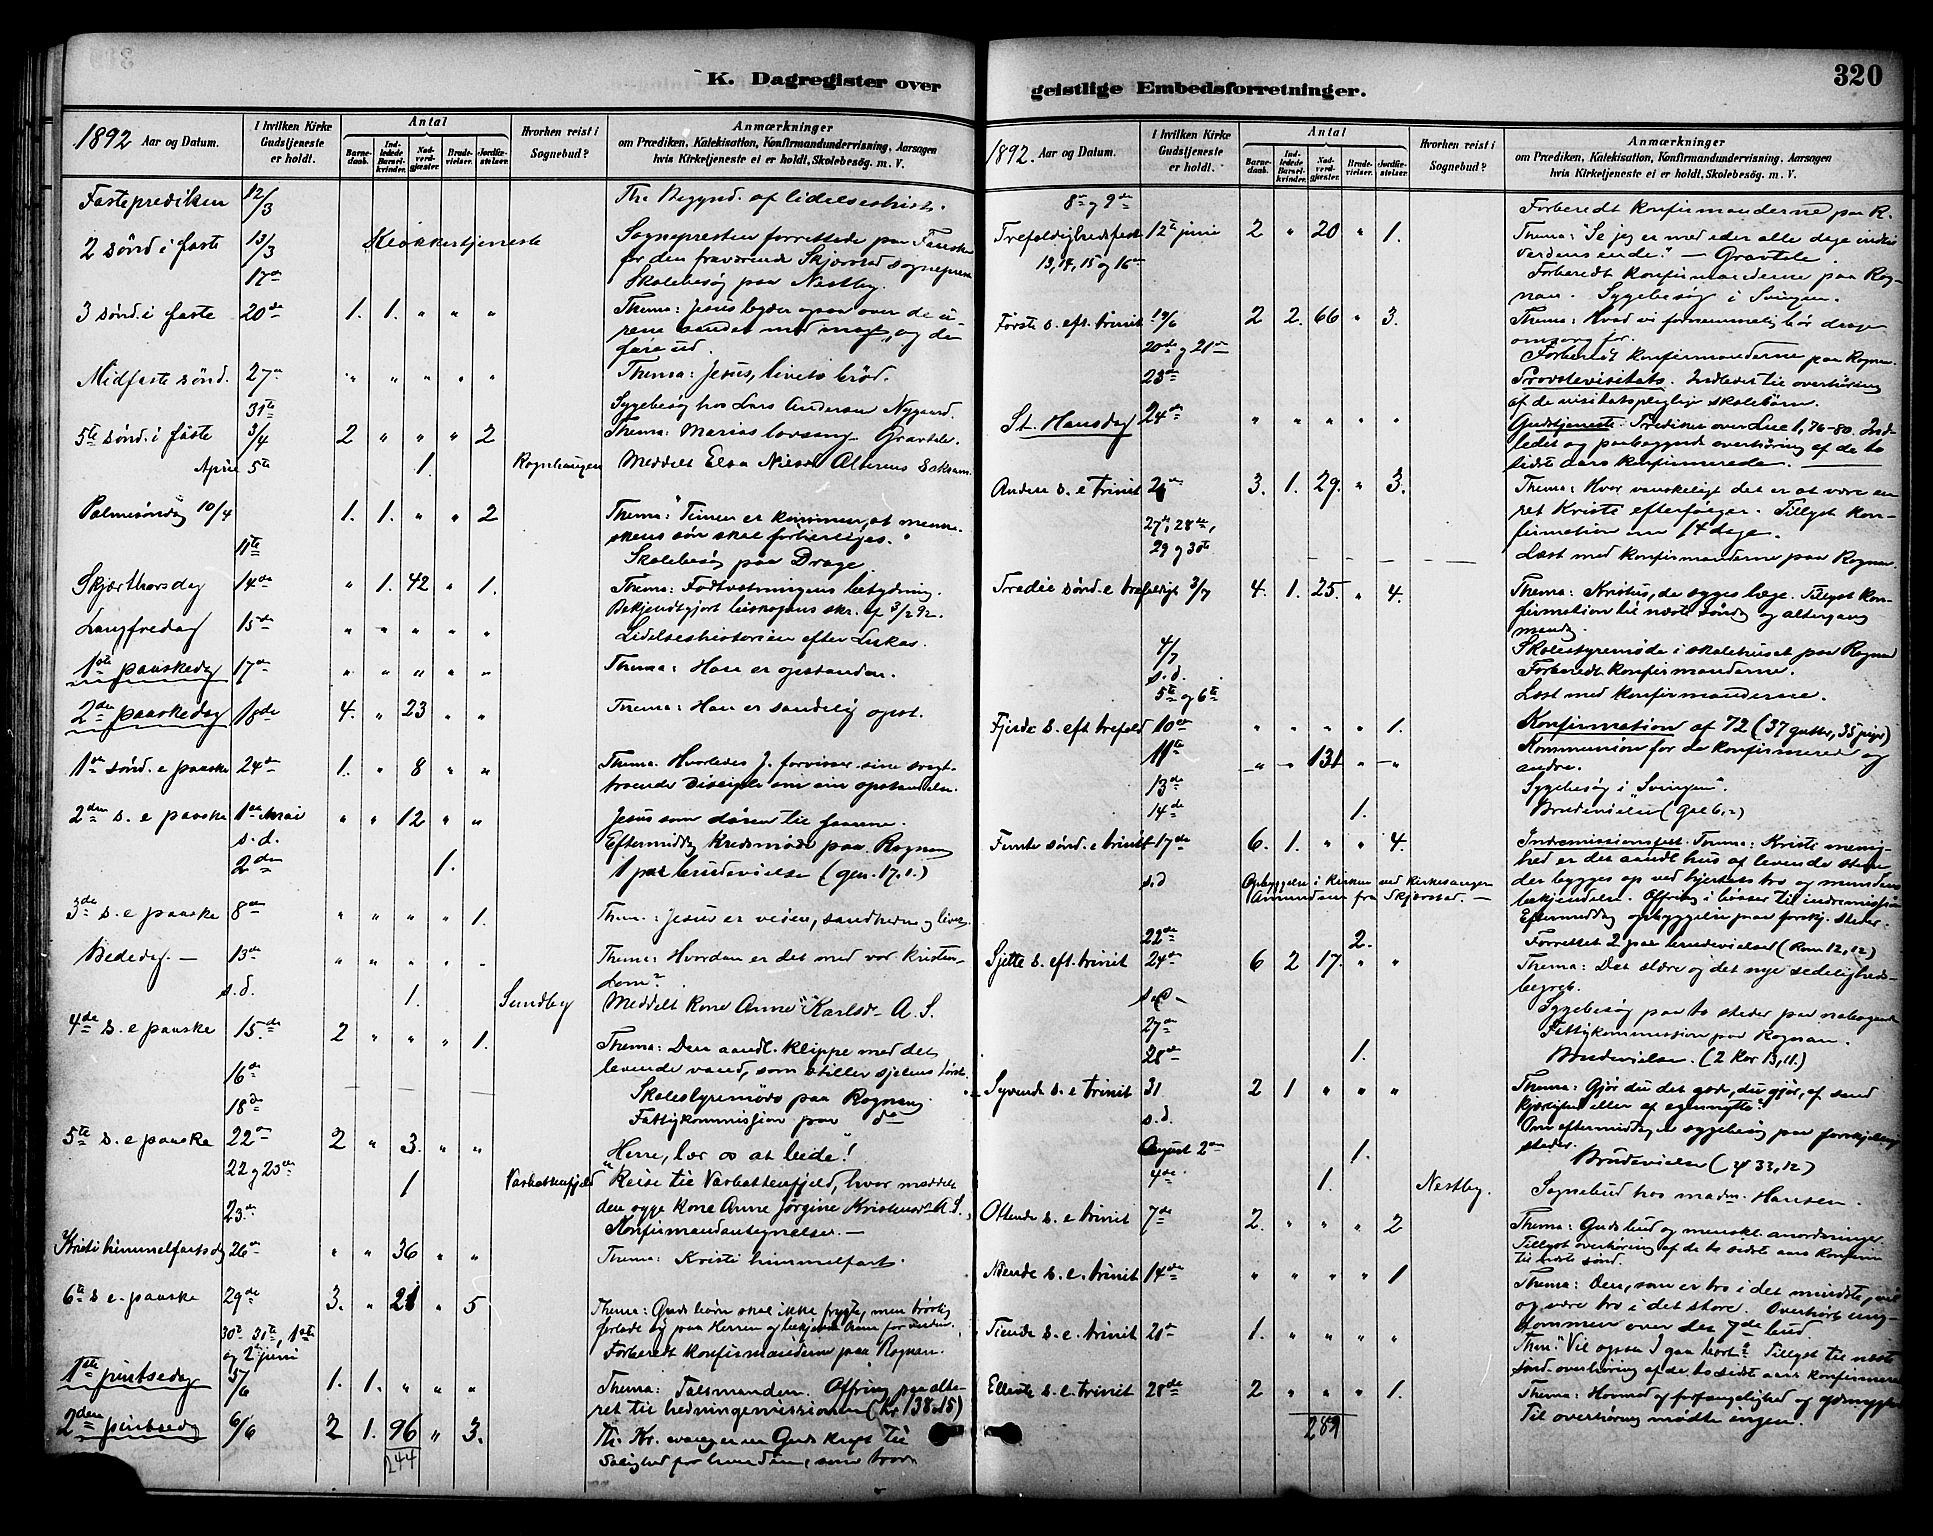 K. Dagregister over
1892 Aar og Datum.
I hvilken Kirke Gudstjeneste er holdt.
Antal
Barnedaab.
Indledede Barselkvinder.
Nadverdgjæster.
Brudevielser.
Jordfæstelser.
Hvorhen reist i Sognebud?
Anmærkninger
om Prædiken, Katekisation, Konfirmandundervisning, Aarsagen
hvis Kirketjeneste ei er holdt, Skolebesøg. m. V.
Fasteprediken 12/3 Th. Begynd. af lidelseshist.
2 sönd i faste 13/3 Klokkertjeneste Sognepresten forrettede paa Fauske
for den fraværende Skjerstad sogneprest
17de Skolebesøg paa Nestby.
3 sönd. i faste 20de 1. 1. " " " Thema: Jesus byder ogsaa over de u-
rene aander med magt, og de
fare ud.
Midfaste sönd. 27de " " " " " Thema: Jesus, livets bröd.
31te Sygebesög hos Lars Andersen Nygaard.
5te sönd. i faste 3/4 2 " " " 2 Thema: Marias lovsang. Gravtale.
April 5te 1. Rognhaugen Meddelt Elsa Nilsd. Alterens Sakram.
Palmesöndag 10/4 1. 1. " " 2 Thema: "Timen er kommen, at menne-
skens sön skal forherliges."
11te Skolebesög paa Drage.
Skjærthorsdag 14de " 1. 42 " 1. Thema: Fodtvætningens betydning.
Bekjendtgjort biskopens skr. af 3/2 92.
Langfredag 15de " " " " " Lidelseshistorien efter Lukas.
1ste paaskedag 17de " " " " " Thema: Han er opstanden.
2den paaskedag 18de 4. " 23 " " Thema: Han er sandelig opst.
1ste sönd. e paaske 24de 1. " 8 " " Thema: Hvorledes J. forvisser sine svagt-
troende Disciple om sin opstandelse.
2den s. e paaske 1ste Mai " " 12 " " Jesus som dören til faarene.
s. d. Eftermiddag kredsmøde paa Rognan
2den 1. 1 par brudevielse (gen. 17.1.)
3de s. e paaske 8de " " " " 1. Them.: Jesus er veien, sandheden og livet.
Bededag. — 13de " " " " " Thema: Hvordan er det med vor kristen-
dom?
s. d. 1. Sundby Meddelt kone Anne Karlsd. A. S.
4de s. e paaske 15de 2 " " " 1. Thema: Den aandl. klippe med det
levende vand, som stiller sjelens törst.
16de Skolestyremöde paa Rognan
18de Fattigkommission paa do
5te s. e paaske 22de 2 " 3. " " "Herre, lær os at bede!"
22 og 23de 1 Varbattenfjeld Reise til Varbattenfjeld, hvor meddelt
den syge kone Anne Jörgine Kristensd. A. S.
23de Konfirmandantegnelse. —
Kristi himmelfartsdag 26de " " 36 " " Thema: Kristi himmelfart.
6te s e. paaske 29de 3. " 21 " 5 Thema: Guds börn skal ikke frygte, men
forlade sig paa Herren og bekjende
30te 31te, 1ste og 2 juni Forberedt konfirmanderne paa Rognan.
1ste pintsedag 5/6 1. 1. " " " Thema: Talsmanden. Offring paa alte-
ret til hedningemissionen (kr. 138.15)
2den pintsedag 6/6 2 1. 96 " 3. Th. Kr. evang. er en Guds kraft til
salighed for hver den, som tror
244
geistlige Embedsforretninger.
320
1892. Aar og Datum.
I hvilken Kirke Gudstjeneste er holdt.
Antal
Barnedaab.
Indledede Barselkvinder.
Nadverdgjæster.
Brudevielser.
Jordfæstelser.
Hvorhen reist i Sognebud?
Anmærkninger
om Prædiken, Katekisation, Konfirmandundervisning, Aarsagen
hvis Kirketjeneste ei er holdt, Skolebesøg. m. V.
8de og 9de Forberedt konfirmanderne paa R.
Trefoldighedsfest 12te juni 2 " 20 " 1. Thema: "Se jeg er med eder alle dage indtil
verdens ende." — Gravtale.
13, 14, 15 og 16de Forberedt konfirmanderne paa Rog-
nan. Sygebesög i Svingen.
Förste s. eft. trinit 19/6 2 2. 66 " 3. Thema: Hvad vi fornemmelig bör drage
omsorg for.
20de og 21de Forberedt konfirmanderne paa Rognan.
23de Provstevisitats. Indledet til overhöring
af de visitatspligtige skolebörn.
St. Hansdag 24de " " " " " Gudstjeneste. Prediken over Luc 1, 76-80. Ind-
ledet og paabegyndt overhöring af de to
sidste aars konfirmerede.
Anden s. e trinit 26de 3. 1. 29. " 3. Thema: Hvor vanskeligt det er at være en
ret Kristi efterfölger. Tillyst kon-
firmation om 14 dage.
27de, 28de, 29 og 30te Læst med konfirmanderne paa Rognan.
Tredie sönd. e trefoldigh 3/7 4. 1. 25. " 4. Thema: Kristus, de syges læge. Tillyst kon-
firmation til næste söndag og altergang
mandag.
4/7 Skolestyremöde i skolehuset paa Rognan
s. d. Forberedt konfirmanderne.
5te og 6te Læst med konfirmanderne.
Fjerde s. eft trefold 10de " " " " 1. Konfirmation af 72 (37 gutter, 35 piger)
11te " " 131 " " Kommunion for de konfirmerede og
andre.
13de Sygebesög i "Svingen".
14de 1. Brudevielse (Gal 6,2)
Femte sönd. e trinit 17de 6. 1. " " 4. Indremissionsfest. Tema: Kristi menig-
hed er det aandl hus af levende stene
der bygges op ved hjertets tro og mundens
bekjendelse. Offring i bösser til indremission
s. d Opbyggelse i kirken ved kirkesanger
Amundsen fra Skjerstad. — Eftermiddag opbyggelse paa forskj. steder.
22de 2. Forrettet 2 par brudevielser (Rom 12,12)
Sjette s. eft. trinit 24de 6 2 17. " " Thema: Det ældre og det nye sædeligheds-
begreb.
s. d — Sygebesög paa to steder paa nabogaarde
27de Fattigkommission paa Rognan.
28de 1. Brudevielse. (2 Kor 13,11.)
Syvende s. e trinit 31 2 1 " " " Thema: Gjør du det gode, du gjør, af sand
kjærlighed eller af egennytte?
s. d. Om eftermiddag sygebesög paa forskjellige
steder.
August 2den 1. Brudevielse (ψ 33,12)
4de 1. Nestby. Sognebud hos madm. Hansen.
Ottende s. e trinit 7de 2. " " " 2 Thema: Guds bud og menskl. anordninger.
Tillyst overhöring af de to sidste aars konfirm
til næste sönd.
Niende s. e. trinit 14de " " " " 1 Thema: Den, som er tro i det mindste, vil
og være tro i det store. Overhört ung-
dommen over det 7de bud.
Tiende s. e. trinit 21de 1. " " " " Them: "Vil ogsaa I gaa bort"? Tillyst til næste
sönd. overhöring af de to sidste aars konfirmerede
Ellevte s. e. trinit 28de 2 " " " 1. Thema: Hovmod og forfængelighed og ydmyghed
Til overhöring mödte ingen.
289